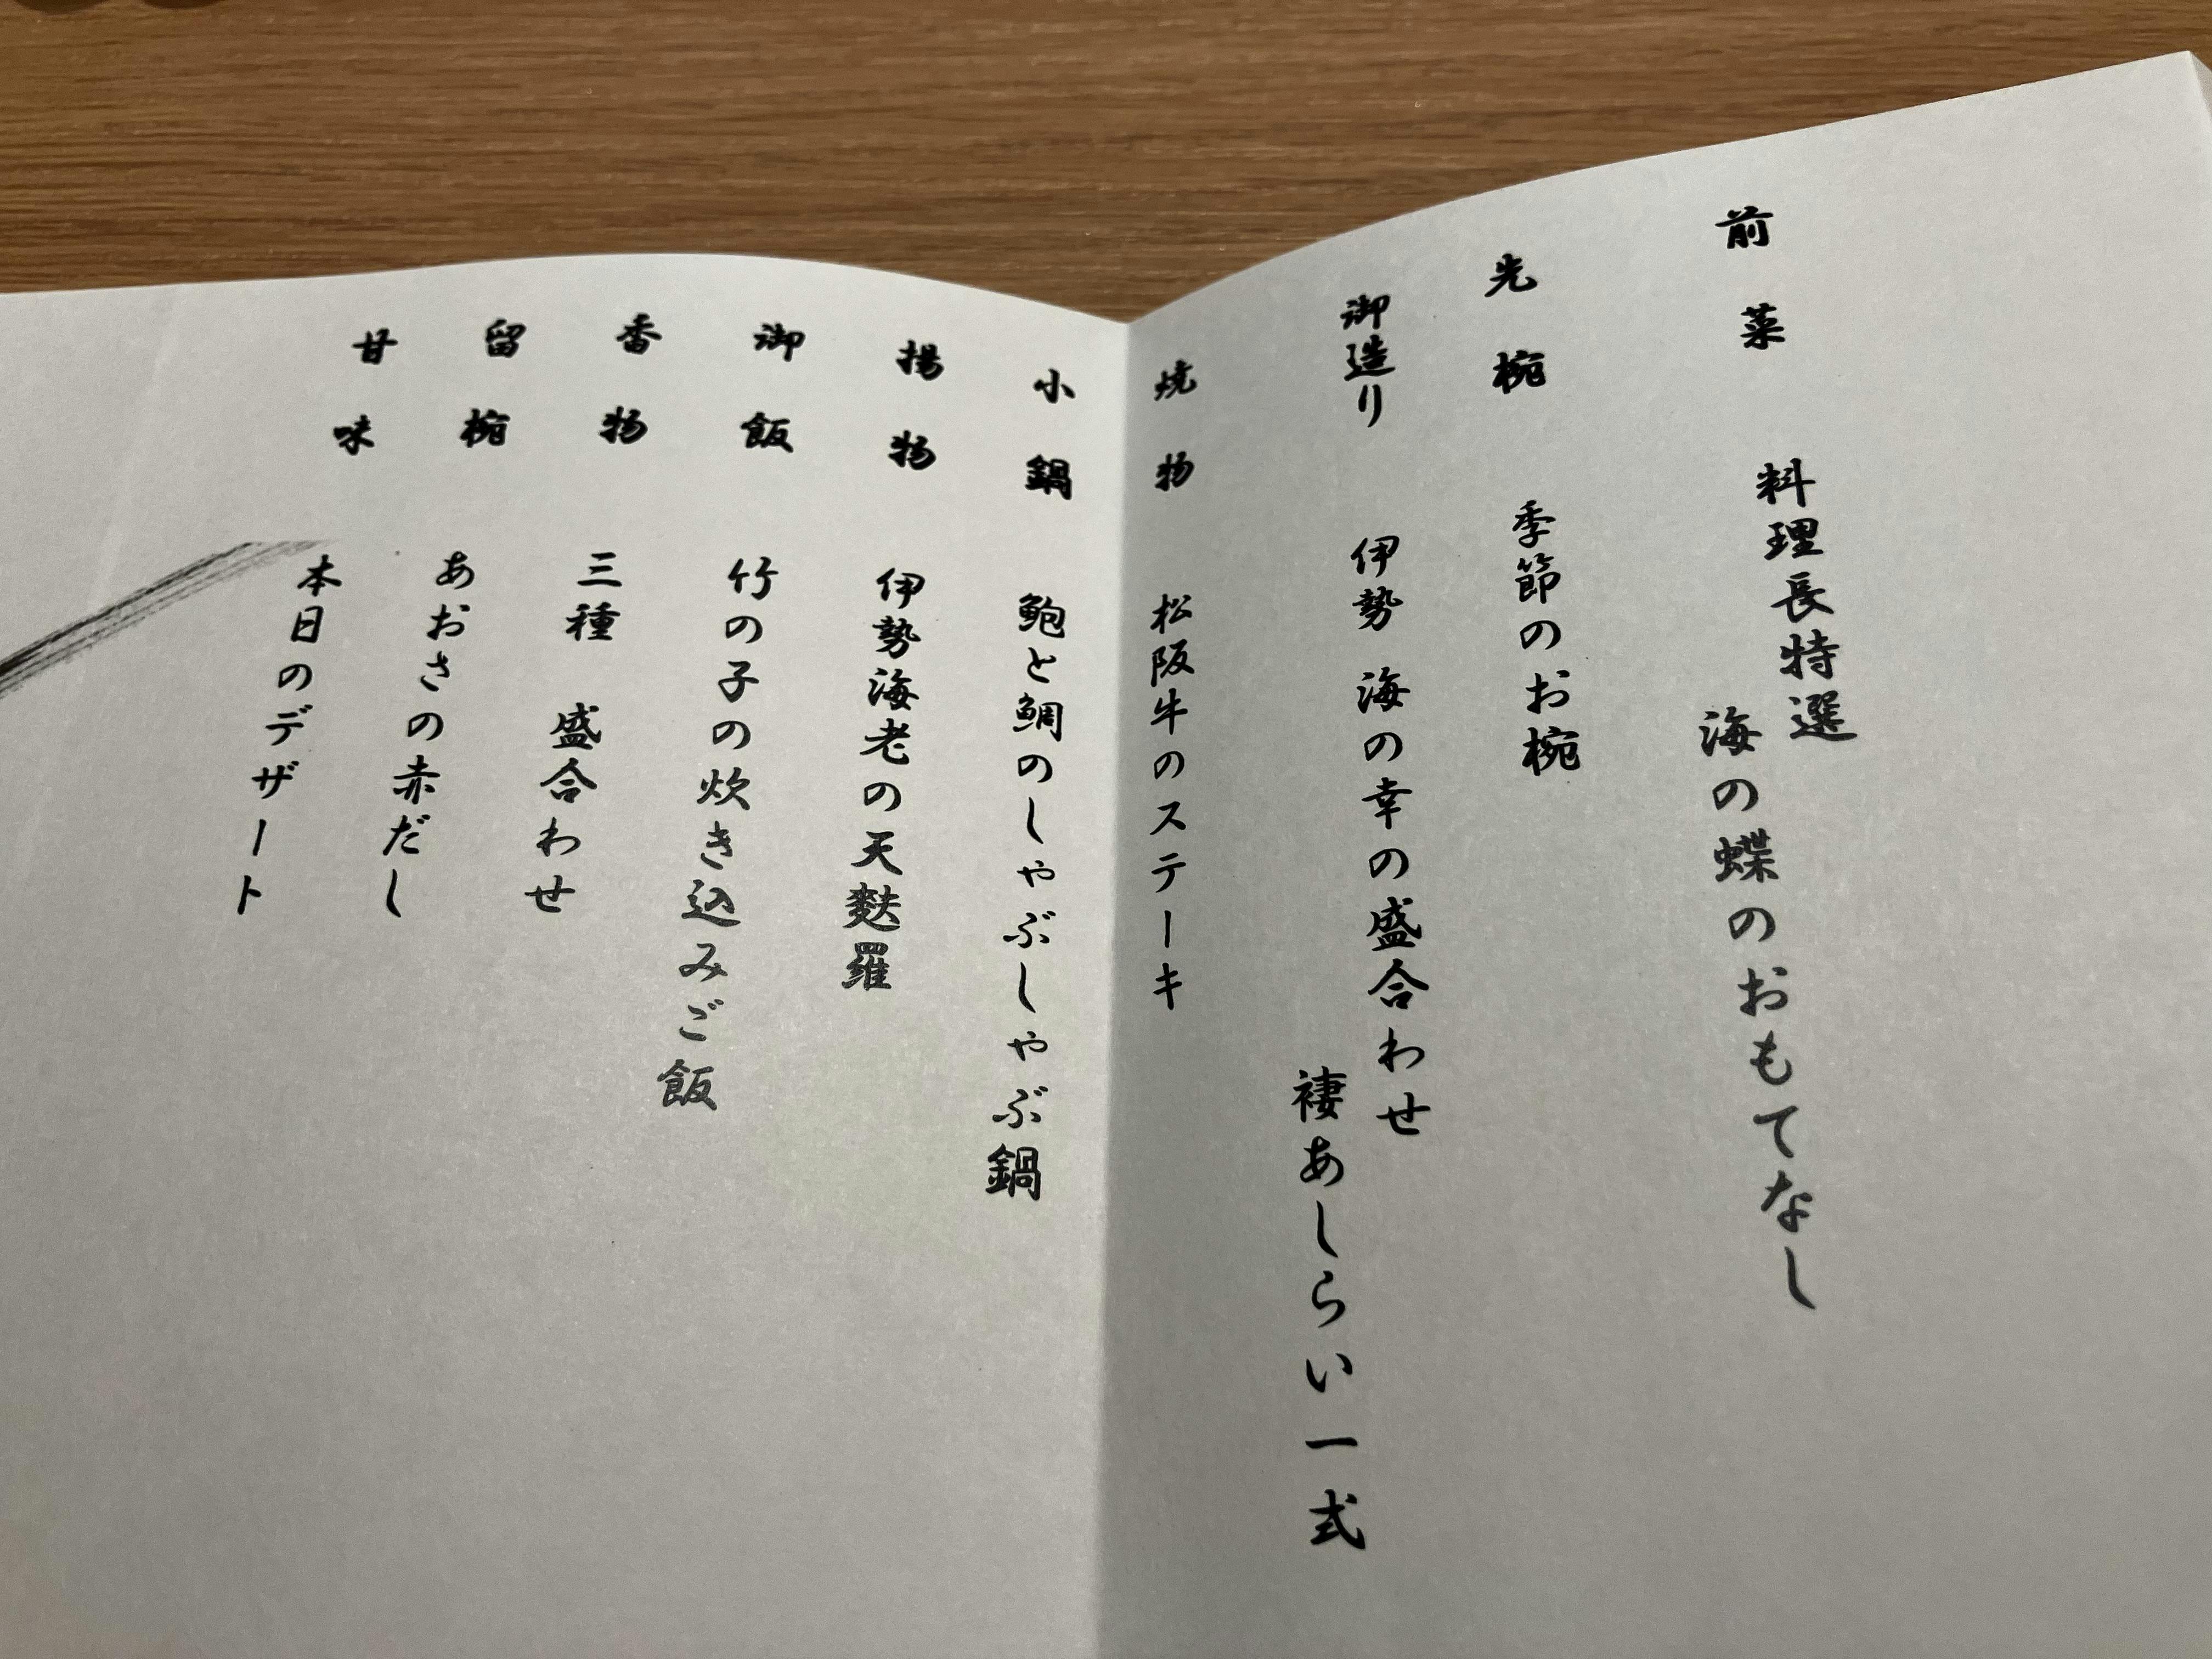 前菜　料理長特選
海の蝶のおもてなし
先椀　季節のお椀
御造り　伊勢　海の幸の盛合わせ
褄あしらい一式
焼物　松阪牛のステーキ
小鍋　鮑と鯛のしゃぶしゃぶ鍋
揚物　伊勢海老の天麩羅
御飯　竹の子の炊き込みご飯
香物　三種　盛合わせ
留椀　あおさの赤だし
甘味　本日のデザート